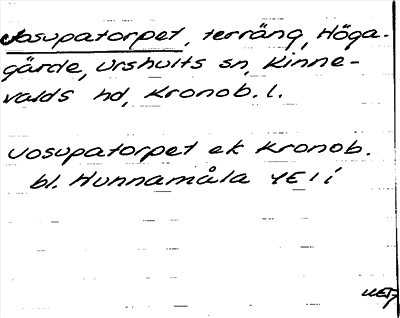 Josupatorpet, terräng, Höga-
gärde, Urshults sn, Kinne-
valds hd, Kronob. l.
Josupatorpet ek Kronob.
bl. Hunnamåla 4E1i